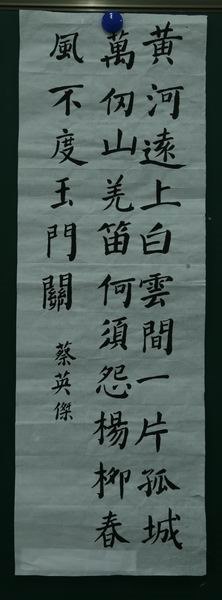 黃河遠上白雲間一片孤城
萬仞山羌笛何須怨楊柳春
風不度玉門關
蔡英傑